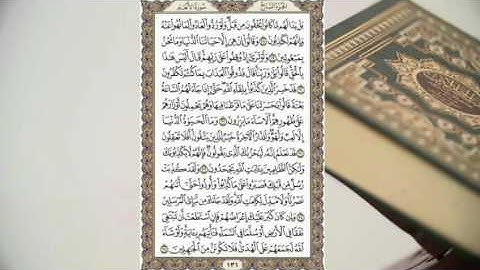 الجزء السابع سورة الأنعام
بَلْ بَدَا لَهُم مَّا كَانُوا۟ يُخْفُونَ مِن قَبْلُ وَلَوْ رُدُّوا۟ لَعَادُوا۟ لِمَا نُهُوا۟ عَنْهُ
وَإِنَّهُمْ لَكَـٰذِبُونَ ٢٨ وَقَالُوٓا۟ إِنْ هِىَ إِلَّا حَيَاتُنَا ٱلدُّنْيَا وَمَا نَحْنُ
بِمَبْعُوثِينَ ٢٩ وَلَوْ تَرَىٰٓ إِذْ وُقِفُوا۟ عَلَىٰ رَبِّهِمْ قَالَ أَلَيْسَ هَـٰذَا
بِٱلْحَقِّ قَالُوا۟ بَلَىٰ وَرَبِّنَا قَالَ فَذُوقُوا۟ ٱلْعَذَابَ بِمَا كُنتُمْ تَكْفُرُونَ
٣٠ قَدْ خَسِرَ ٱلَّذِينَ كَذَّبُوا۟ بِلِقَآءِ ٱللَّهِ حَتَّىٰٓ إِذَا جَآءَتْهُمُ ٱلسَّاعَةُ
بَغْتَةً قَالُوا۟ يَـٰحَسْرَتَنَا عَلَىٰ مَا فَرَّطْنَا فِيهَا وَهُمْ يَحْمِلُونَ أَوْزَارَهُمْ
عَلَىٰ ظُهُورِهِمْ أَلَا سَآءَ مَا يَزِرُونَ ٣١ وَمَا ٱلْحَيَوٰةُ ٱلدُّنْيَآ
إِلَّا لَعِبٌ وَلَهْوٌ وَلَلدَّارُ ٱلْـَٔاخِرَةُ خَيْرٌ لِّلَّذِينَ يَتَّقُونَ أَفَلَا تَعْقِلُونَ
٣٢ قَدْ نَعْلَمُ إِنَّهُۥ لَيَحْزُنُكَ ٱلَّذِى يَقُولُونَ فَإِنَّهُمْ لَا يُكَذِّبُونَكَ
وَلَـٰكِنَّ ٱلظَّـٰلِمِينَ بِـَٔايَـٰتِ ٱللَّهِ يَجْحَدُونَ ٣٣ وَلَقَدْ كُذِّبَتْ
رُسُلٌ مِّن قَبْلِكَ فَصَبَرُوا۟ عَلَىٰ مَا كُذِّبُوا۟ وَأُوذُوا۟ حَتَّىٰٓ أَتَىٰهُمْ
نَصْرُنَا وَلَا مُبَدِّلَ لِكَلِمَـٰتِ ٱللَّهِ وَلَقَدْ جَآءَكَ مِن نَّبَإِى۟ ٱلْمُرْسَلِينَ
٣٤ وَإِن كَانَ كَبُرَ عَلَيْكَ إِعْرَاضُهُمْ فَإِنِ ٱسْتَطَعْتَ أَن تَبْتَغِىَ
نَفَقًا فِى ٱلْأَرْضِ أَوْ سُلَّمًا فِى ٱلسَّمَآءِ فَتَأْتِيَهُم بِـَٔايَةٍ وَلَوْ شَآءَ
ٱللَّهُ لَجَمَعَهُمْ عَلَى ٱلْهُدَىٰ فَلَا تَكُونَنَّ مِنَ ٱلْجَـٰهِلِينَ ٣٥
١٣١